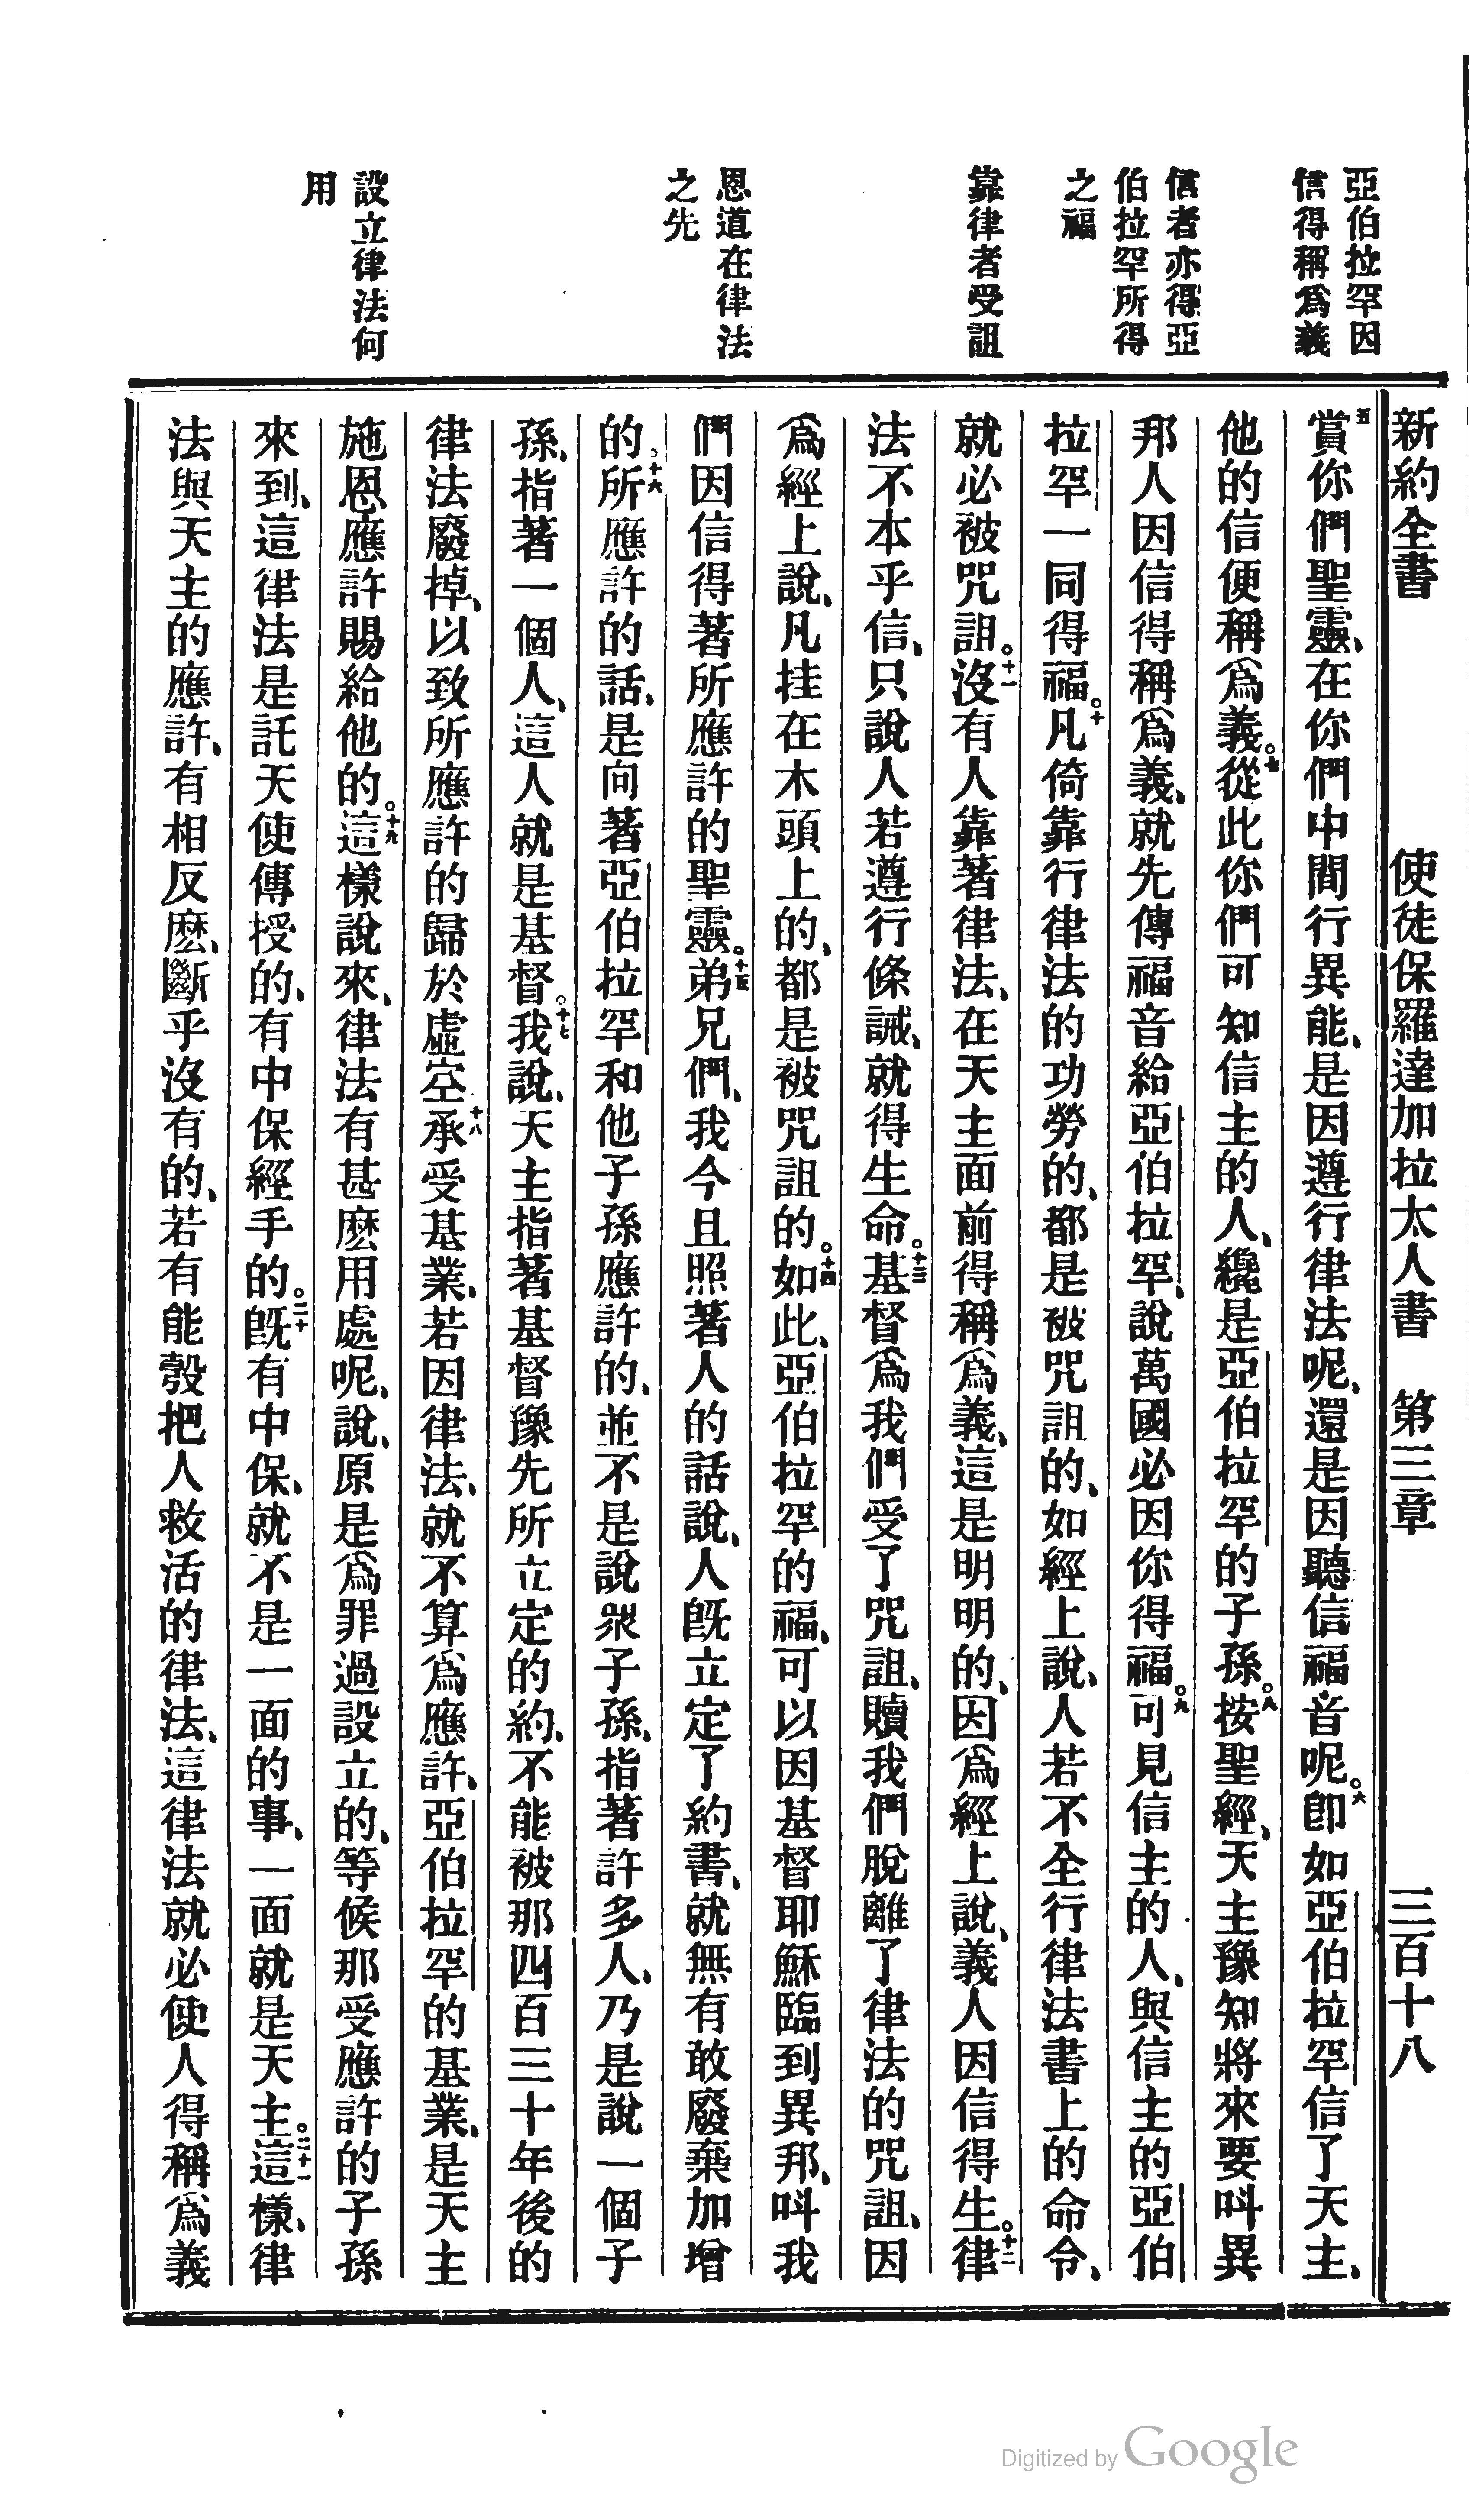 亞伯拉罕因
信得稱爲義
信者亦得亞
伯拉罕所得
之福
靠律者受詛
恩道在律法
之先
設立律法何
用
新約全書 使徒保羅達加拉太人書 第三章 三百十八
五賞你們聖靈、在你們中間行異能、是因遵行律法呢、還是因聽信福音呢。六卽如亞伯拉罕信了天主、
他的信便稱爲義。七從此你們可知信主的人、纔是亞伯拉罕的子孫。八按聖經、天主豫知將來要叫異
邦人因信得稱爲義、就先傳福音給亞伯拉罕、說萬國必因你得福。九可見信主的人、與信主的亞伯
拉罕一同得福。十凡倚靠行律法的功勞的、都是被咒詛的、如經上說、人若不全行律法書上的命令、
就必被咒詛。十一沒有人靠著律法、在天主面前得稱爲義、這是明明的、因爲經上說、義人因信得生。十二律
法不本乎信、只說人若遵行條誡、就得生命。十三基督爲我們受了咒詛、贖我們脫離了律法的咒詛、因
爲經上說、凡挂在木頭上的、都是被咒詛的。十四如此、亞伯拉罕的福、可以因基督耶穌臨到異邦、叫我
們因信得著所應許的聖靈。十五弟兄們、我今且照著人的話說、人旣立定了約書、就無有敢廢棄加增
的。十六所應許的話、是向著亞伯拉罕和他子孫應許的、並不是說眾子孫、指著許多人、乃是說一個子
孫、指著一個人、這人就是基督。十七我說、天主指著基督豫先所立定的約、不能被那四百三十年後的
律法廢掉、以致所應許的歸於虛空十八承受基業、若因律法、就不算爲應許、亞伯拉罕的基業、是天主
施恩應許賜給他的。十九這樣說來、律法有甚麽用處呢、說、原是爲罪過設立的、等候那受應許的子孫
來到、這律法是託天使傳授的、有中保經手的。二十旣有中保、就不是一面的事、一面就是天主。二十一這樣、律
法與天主的應許、有相反麽、斷乎沒有的、若有能彀把人救活的律法、這律法就必使人得稱爲義
Digitized by Google